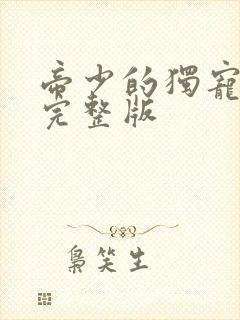 帝少的獨寵
完整版
梟笑生